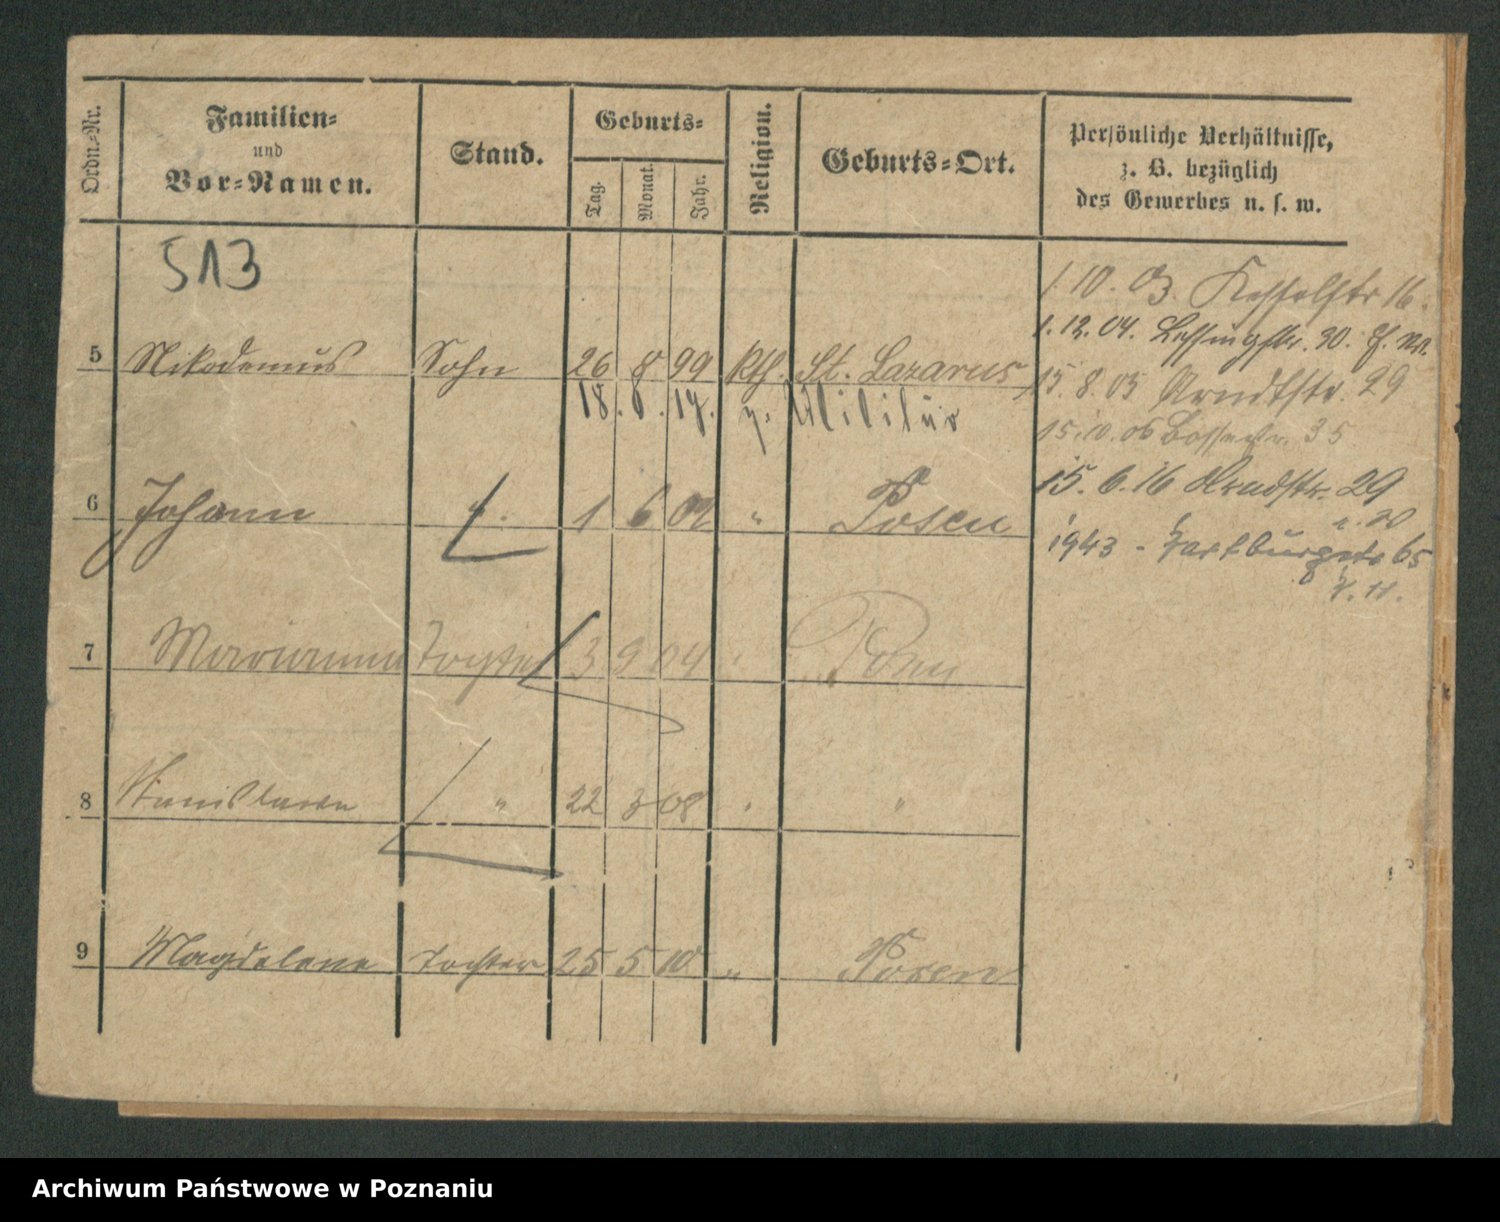 Ordn.-Nr.
Familien-
und
Vor-Namen.
Stand.
Geburts-
Tag.
Monat.
Jahr.
Religion.
Geburts-Ort.
Persönliche Verhältnisse,
z. B. bezüglich
des Gewerbes u. s. w.
513
1. 10. 03. Kesselstr 16.
1. 12. 04. Lessingstr. 30.
5 Nikodemus Sohn 26 8 99 kth. St. Lazarus
15. 8. 05 Arndtstr. 29
18. 6. 17. z. Militär
15. 10. 06 35
15. 6. 16 Arndstr. 29
6 Johann 1 6 02 " Posen
1943 - Wartburgstr 65
7 Marianna Tochter 3 9 04 " Posen
8 Stanislawa " 22 3 08 " "
9 Magdalena Tochter 25 5 10 " Posen
Archiwum Państwowe w Poznaniu